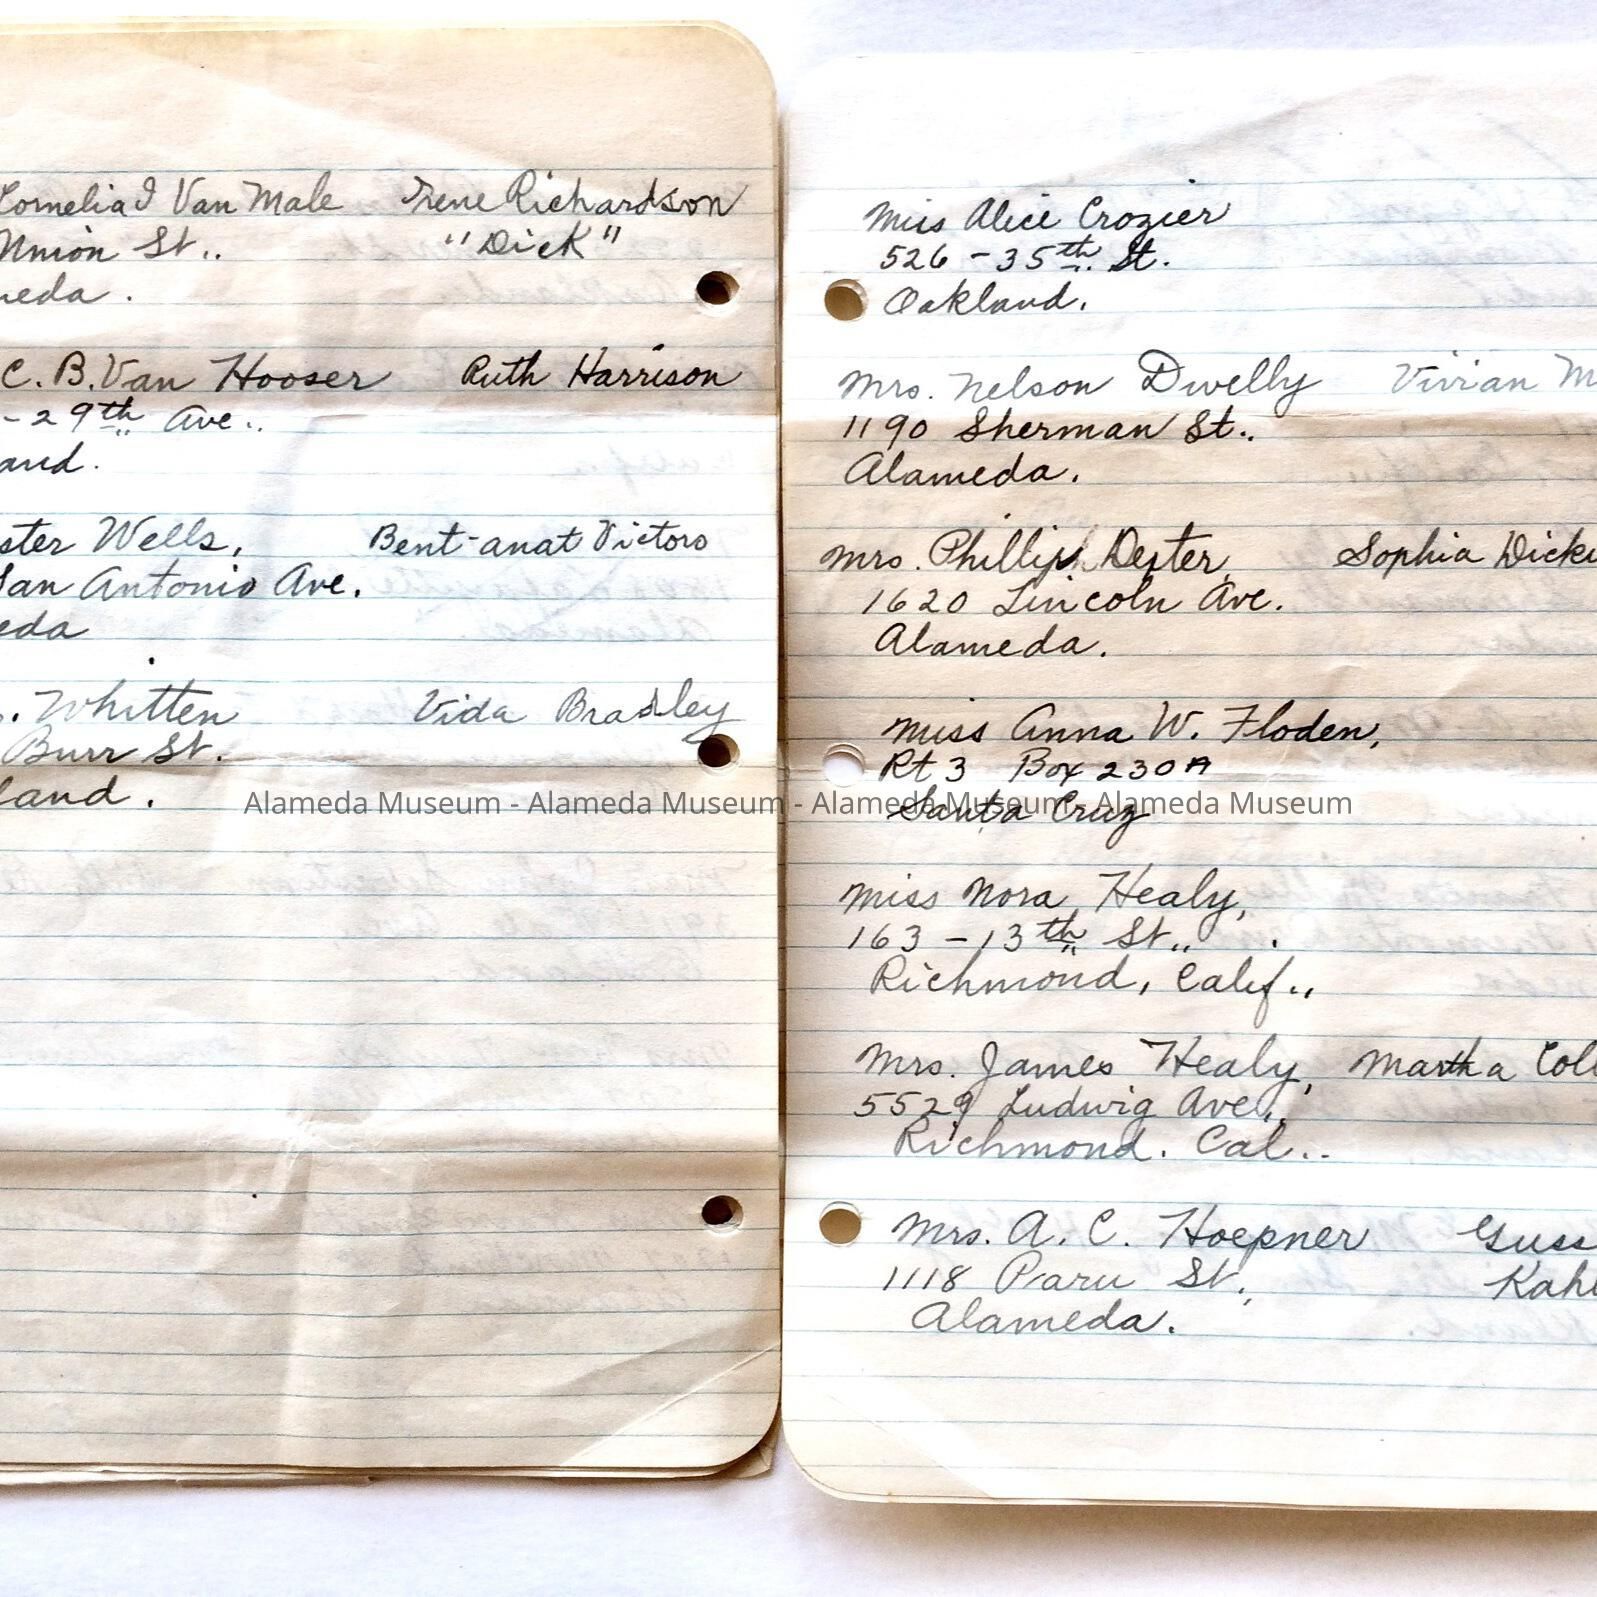 Cornelia I Van Male Irene Richardson
Union St.. "Dick"
meda.
C. B. Van Hooser Ruth Harrison
-29th Ave..
land.
ster Wells, Bent-anat Victors
San Antonio Ave.
eda
. Whitten Vida Bradley
Burr St.
land.
Miss Alice Crozier
526 - 35th St.
Oakland.
Mrs. Nelson Dwelly Vivian M
1190 Sherman St..
Alameda.
Mrs. Phillip Dexter, Sophia Dick
1620 Lincoln Ave.
Alameda.
Miss Anna W. Floden,
Rt 3 Box 230A
Santa Cruz
Miss Nora Healy,
163 - 13th St.,
Richmond, Calif.,
Mrs. James Healy, Martha Coll
5529 Ludwig Ave.,
Richmond. Cal..
Mrs. A. C. Hoepner Guss
1118 Paru St., Kahl
Alameda.
Alameda Museum - Alameda Museum - Alameda Museum - Alameda Museum